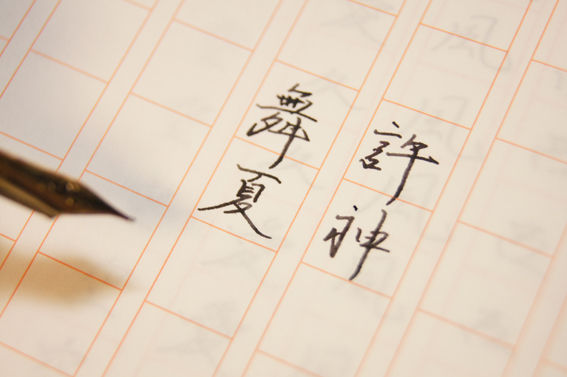 許神
舞夏